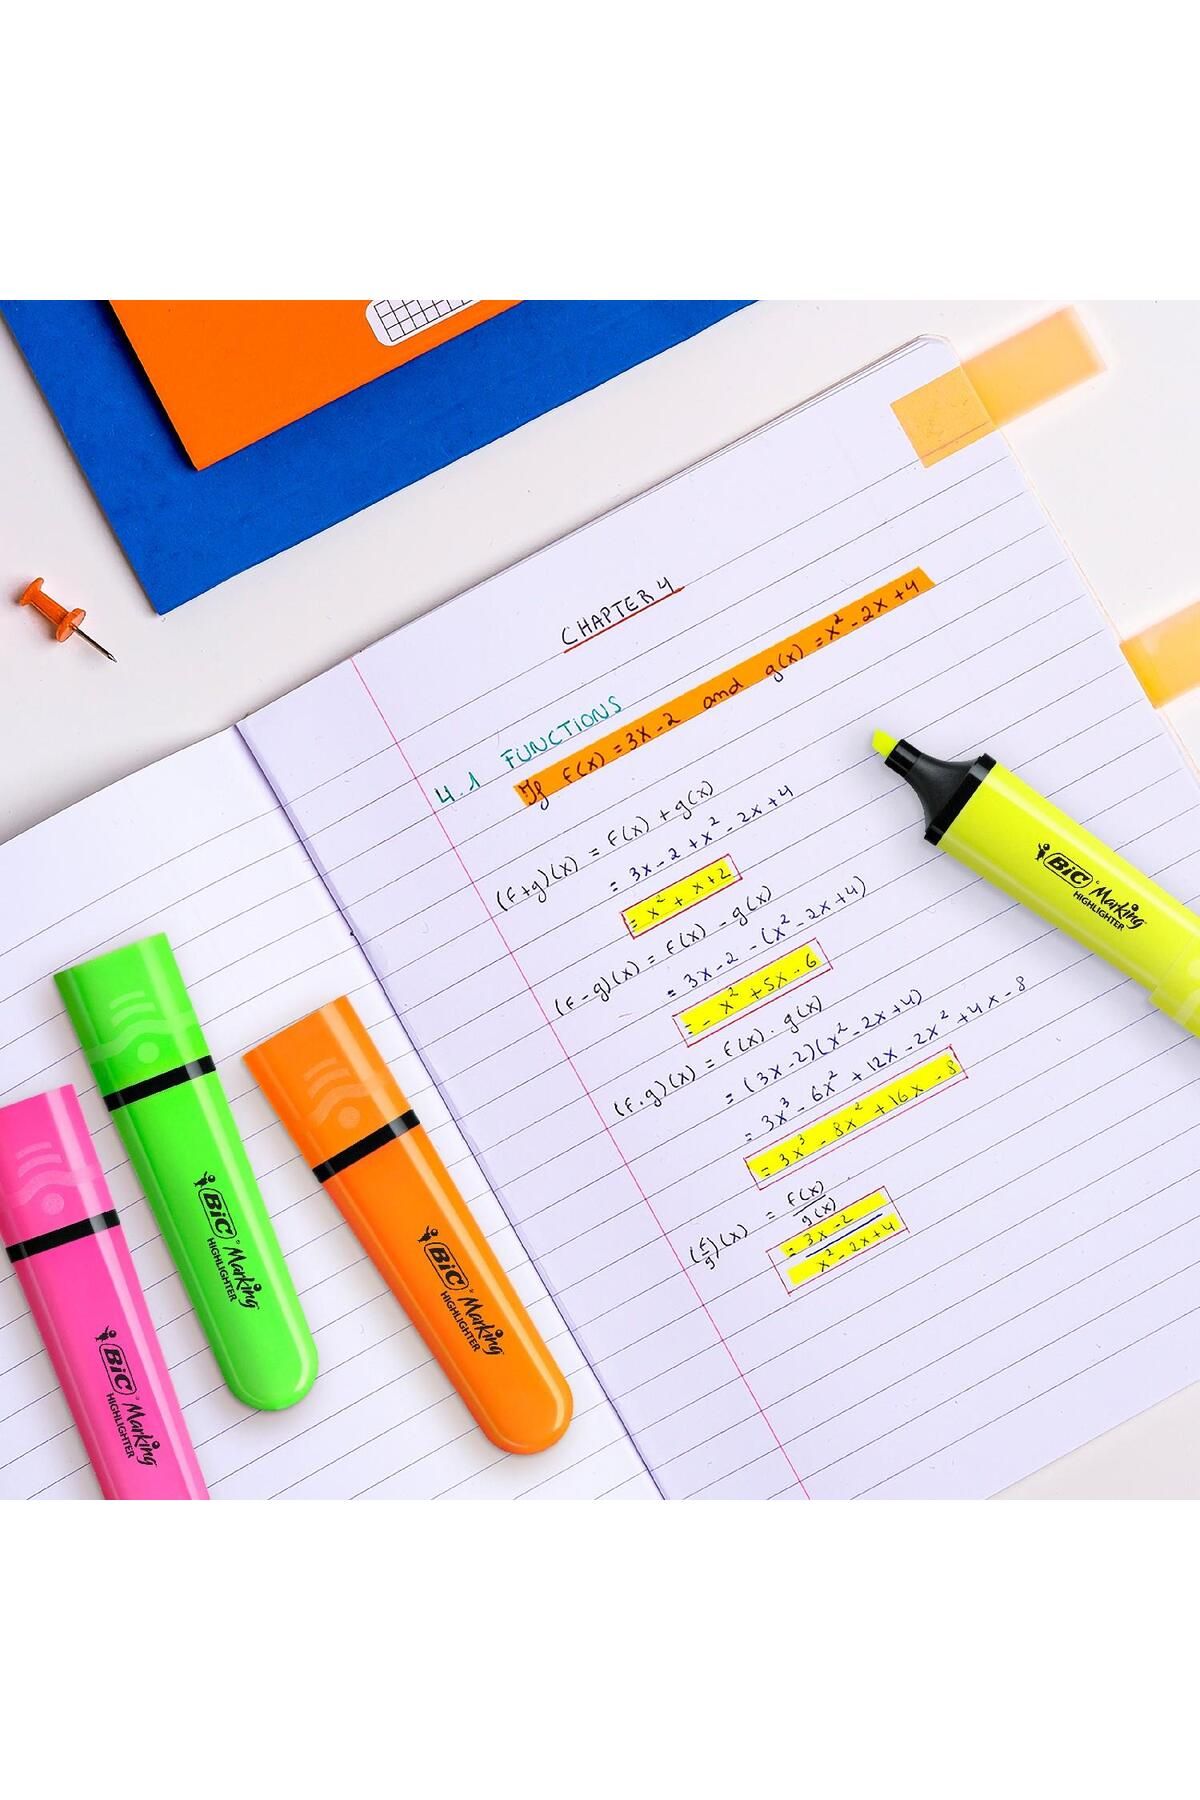 CHAPTER 4
4.1 FUNCTIONS
If f(x) = 3x - 2 and g(x) = x² - 2x + 4
(f+g)(x) = f(x) + g(x)
= 3x - 2 + x² - 2x + 4
= x² + x + 2
(f-g)(x) = f(x) - g(x)
= 3x - 2 - (x² - 2x + 4)
= - x² + 5x - 6
(f.g)(x) = f(x) . g(x)
= (3x - 2)(x² - 2x + 4)
= 3x³ - 6x² + 12x - 2x² + 4x - 8
= 3x³ - 8x² + 16x - 8
(f/g)(x) = f(x)/g(x)
= 3x - 2/x² - 2x + 4
BiC® Marking™
HIGHLIGHTER
BiC® Marking™
HIGHLIGHTER
BiC® Marking™
HIGHLIGHTER
BiC® Marking™
HIGHLIGHTER